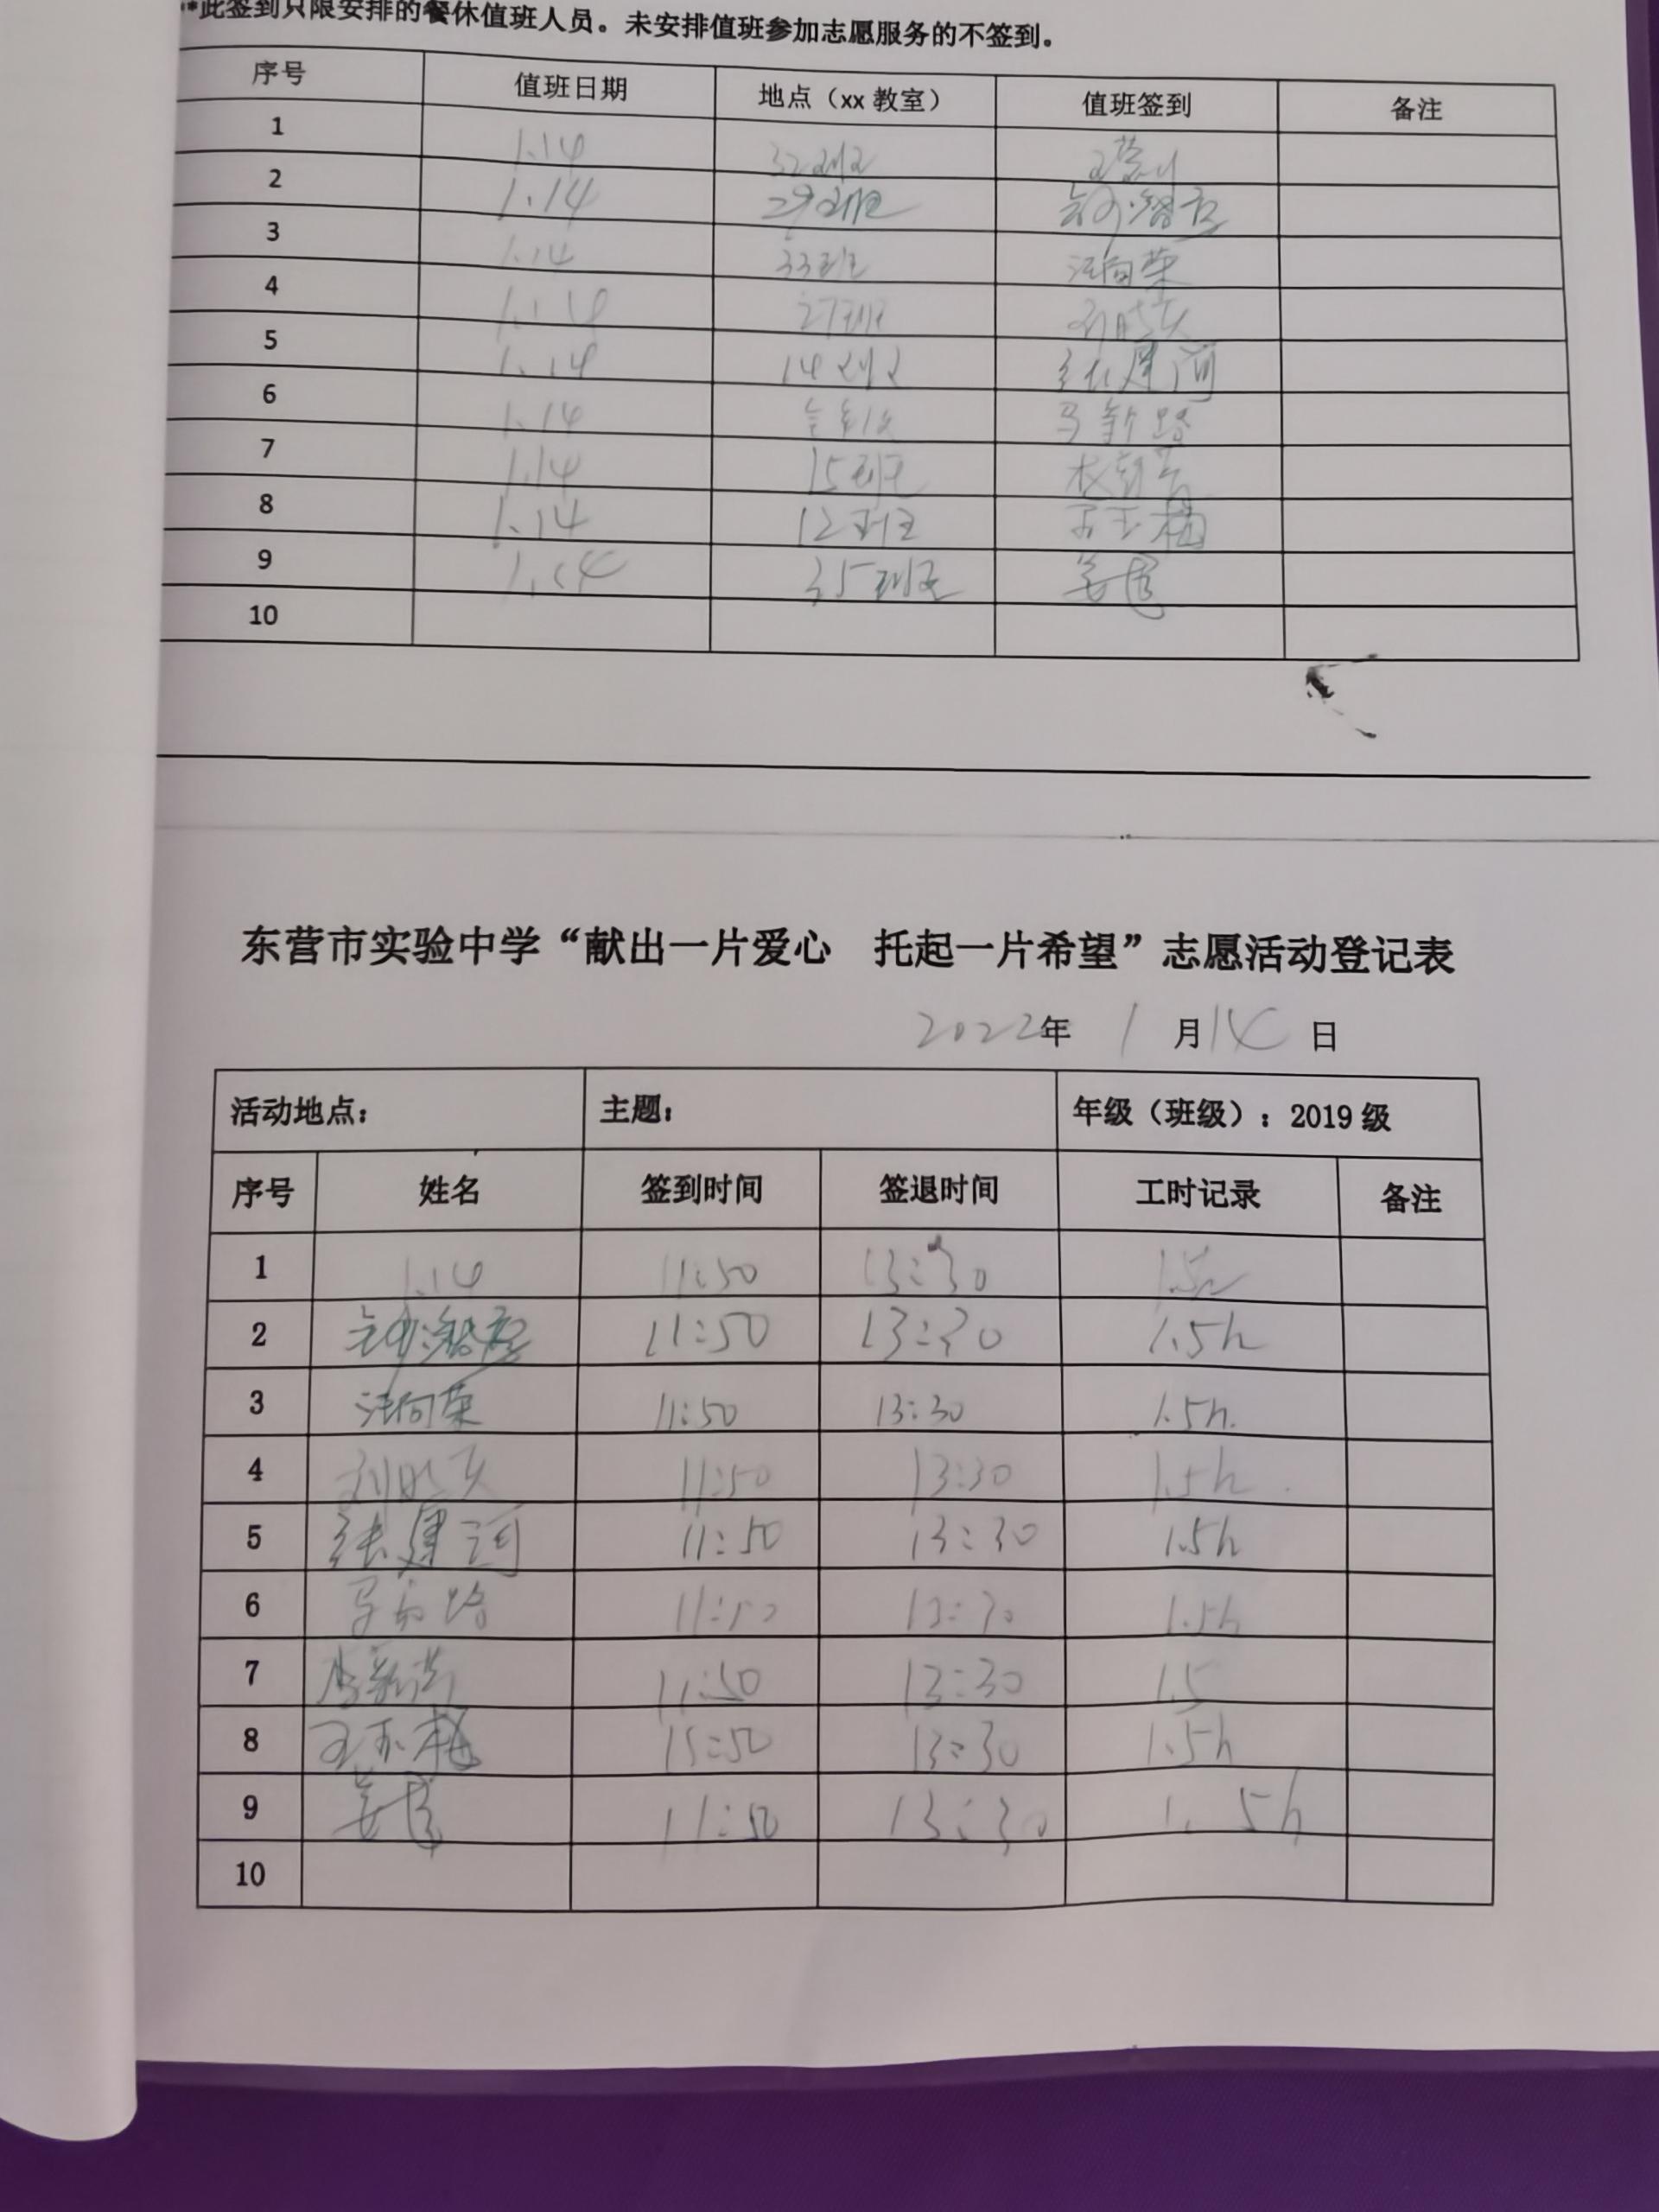 **此签到只限安排的餐休值班人员。未安排值班参加志愿服务的不签到。
序号 值班日期 地点（xx 教室） 值班签到 备注
1 1.14 32班
2 1.14 29班
3 1.14 33班 汪向荣
4 1.14 27班
5 1.14 14班 张建河
6 1.14 马新路
7 1.14 15班
8 1.14 12班 王玉梅
9 1.14 35班 姜
10
东营市实验中学“献出一片爱心 托起一片希望”志愿活动登记表
2022年 1月14日
活动地点： 主题： 年级（班级）：2019 级
序号 姓名 签到时间 签退时间 工时记录 备注
1 1.14 11:50 13:30 1.5h
2 11:50 13:30 1.5h
3 汪向荣 11:50 13:30 1.5h.
4 11:50 13:30 1.5h.
5 张建河 11:50 13:30 1.5h
6 马新路 11:50 13:30 1.5h
7 11:50 13:30 1.5
8 王玉梅 11:50 13:30 1.5h
9 姜 11:50 13:30 1.5h
10